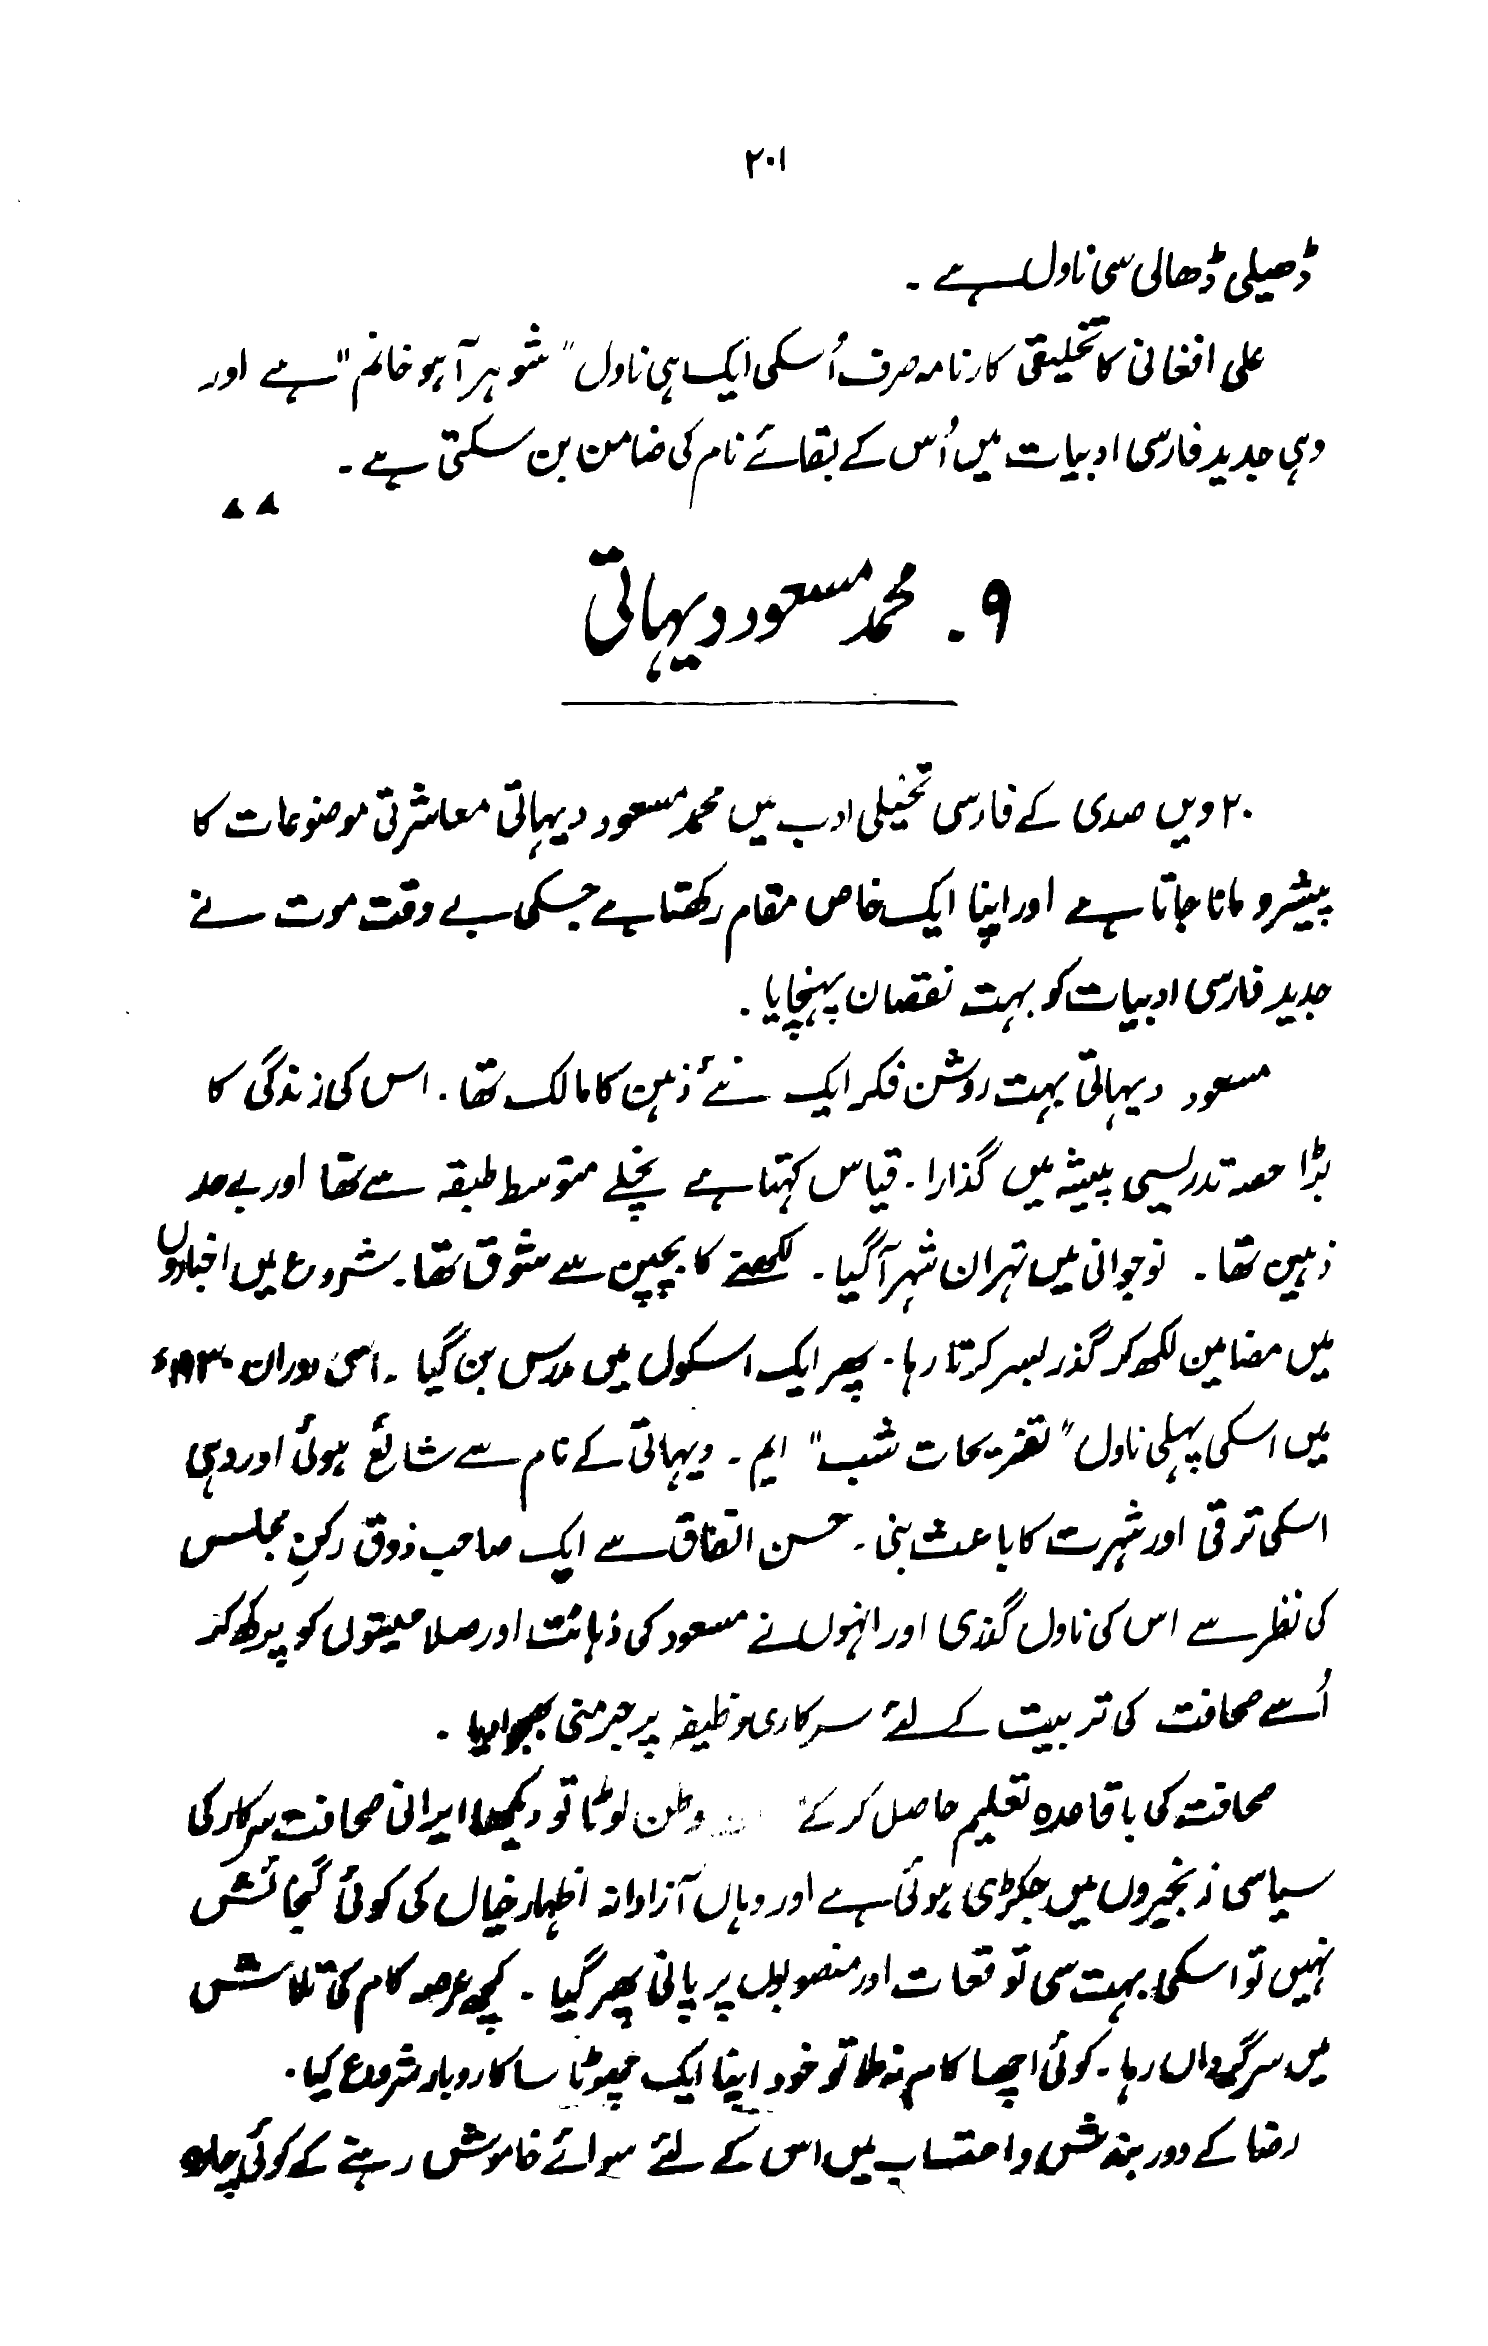 ۲۰۱
ڈھیلی ڈھالی سی ناول ہے ۔
علی افغانی کا تخلیقی کارنامہ صرف اُسکی ایک ہی ناول " شوہر آہو خانم " ہے اور
وہی جدید فارسی ادبیات میں اُس کے بقائے نام کی ضامن بن سکتی ہے ۔
۹ . محمد مسعود دیہاتی
۲۰ ویں صدی کے فارسی تخیلی ادب میں محمد مسعود دیہاتی معاشرتی موضوعات کا
پیشرو مانا جاتا ہے اور اپنا ایک خاص مقام رکھتا ہے جسکی بے وقت موت نے
جدید فارسی ادبیات کو بہت نقصان پہنچایا .
مسعود دیہاتی بہت روشن فکر ایک نئے ذہن کا مالک تھا . اس کی زندگی کا
بڑا حصہ تدریسی پیشہ میں گذارا ۔ قیاس کہتا ہے نچلے متوسط طبقہ سے تھا اور بے حد
ذہین تھا ۔ نوجوانی میں تہران شہر آ گیا ۔ لکھنے کا بچپن سے شوق تھا ۔ شروع میں اخباروں
میں مضامین لکھ کر گذر بسر کرتا رہا ۔ پھر ایک اسکول میں مدرس بن گیا ۔ اسی دوران ۱۹۳۰ء
میں اسکی پہلی ناول " تفریحات شب " ایم ۔ دیہاتی کے نام سے شائع ہوئی اور وہی
اسکی ترقی اور شہرت کا باعث بنی ۔ حسن اتفاق سے ایک صاحب ذوق رکنِ مجلس
کی نظر سے اس کی ناول گذری اور انہوں نے مسعود کی ذہانت اور صلاحیتوں کو پرکھ کر
اُسے صحافت کی تربیت کے لئے سرکاری وظیفہ پر جرمنی بھجوا دیا ۔
صحافت کی باقاعدہ تعلیم حاصل کر کے وطن لوٹا تو دیکھا ایرانی صحافت سرکار کی
سیاسی زنجیروں میں جکڑی ہوئی ہے اور وہاں آزادانہ اظہار خیال کی کوئی گنجائش
نہیں تو اسکی بہت سی توقعات اور منصوبوں پر پانی پھر گیا ۔ کچھ عرصہ کام کی تلاش
میں سرگرداں رہا ۔ کوئی اچھا کام نہ ملا تو خود اپنا ایک چھوٹا سا کاروبار شروع کیا ۔
رضا کے دور بندش و احتساب میں اس کے لئے سوائے خاموش رہنے کے کوئی چارہ